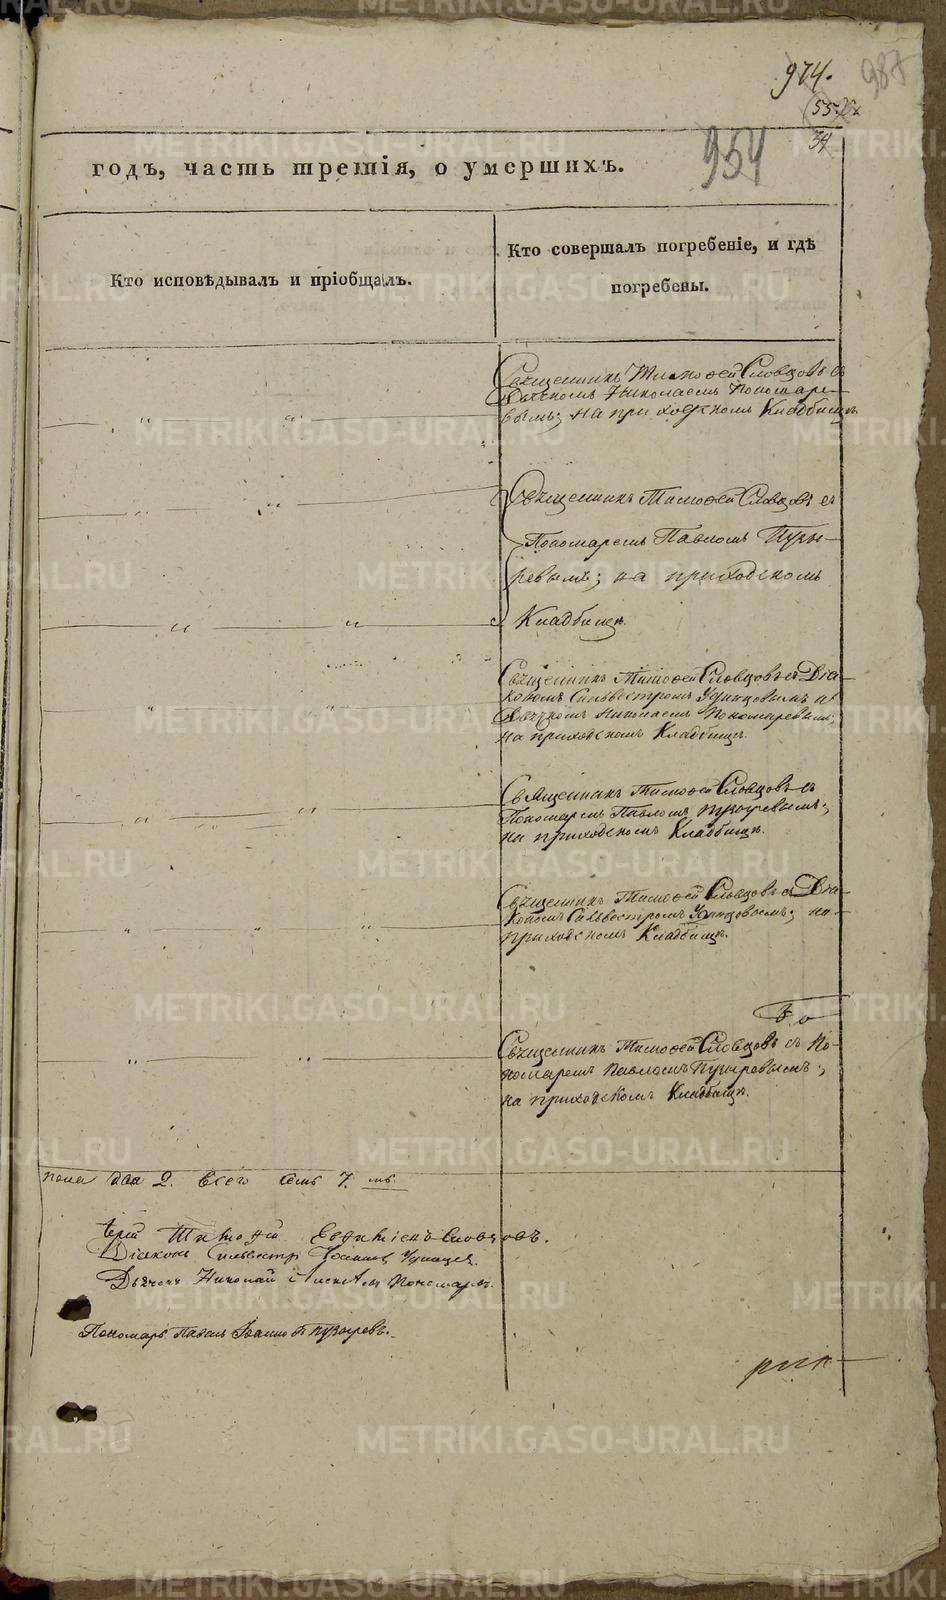 974.
987
55.
34
954
годъ, часть третія, о умершихъ.
Кто исповѣдывалъ и пріобщалъ.
Кто совершалъ погребеніе, и гдѣ
погребены.
Священникъ Тимофей Словцовъ съ
Дьячкомъ Николаемъ Пономаре-
вымъ; на приходскомъ Кладбищѣ
Священникъ Тимофей Словцовъ съ
Пономаремъ Павломъ Пузы-
ревымъ; на приходскомъ
Кладбищѣ.
Священникъ Тимофей Словцовъ съ Діа-
кономъ Сильвестромъ Удинцовымъ и
Дьячкомъ Николаемъ Пономаревымъ;
на приходскомъ Кладбищѣ.
Священникъ Тимофей Словцовъ съ
Пономаремъ Павломъ Пузыревымъ;
на приходскомъ Кладбищѣ.
Священникъ Тимофей Словцовъ съ Діа-
кономъ Сильвестромъ Удинцовымъ; на
приходскомъ Кладбищѣ.
Священникъ Тимофей Словцовъ съ По-
номаремъ Павломъ Пузыревымъ;
на приходскомъ Кладбищѣ.
пола два 2. Всего семь 7.
Іерей Тимофей Словцовъ.
Діаконъ Сильвестръ
Дьячекъ Николай Пономаревъ.
Пономарь Павелъ Іоанновъ Пузыревъ.
METRIKI.GASO-URAL.RU